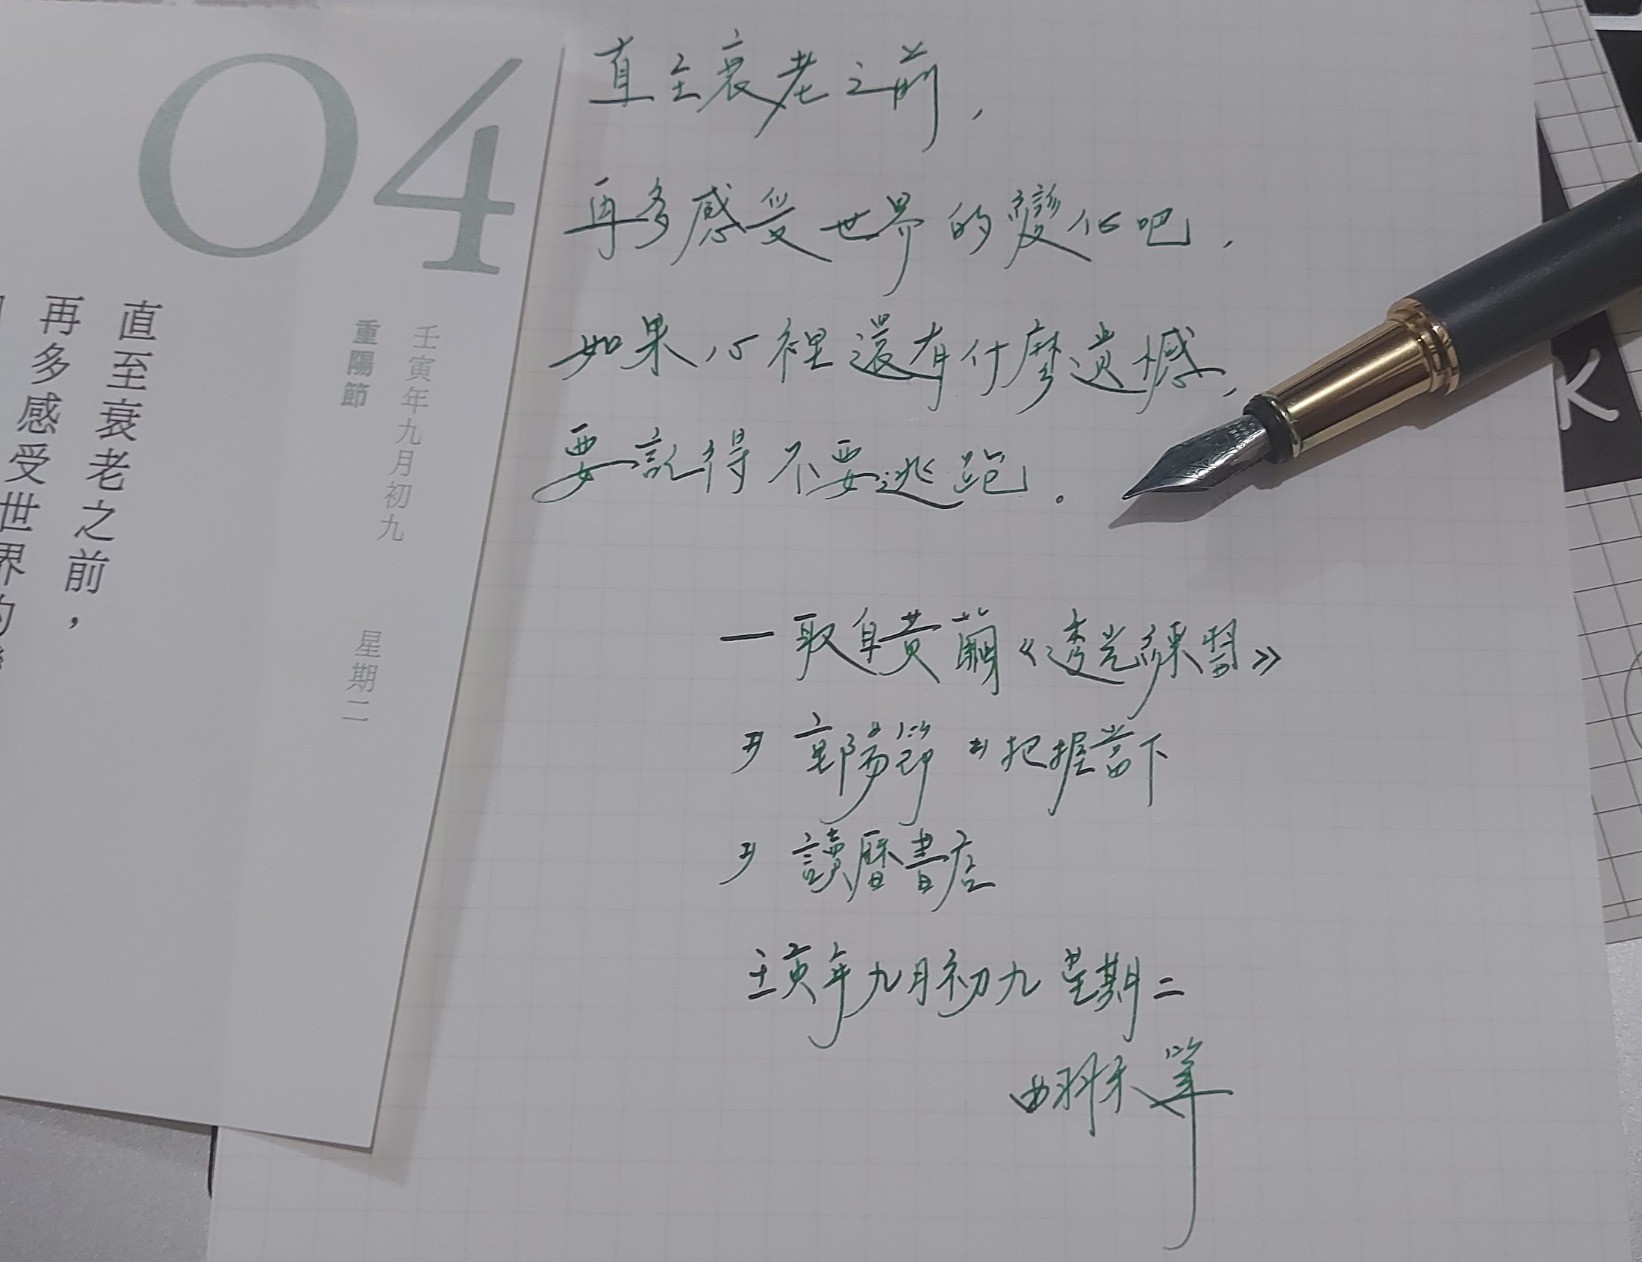 04
壬寅年九月初九 星期二
重陽節
直至衰老之前，
再多感受世界的
直至衰老之前，
再多感受世界的變化吧，
如果心裡還有什麼遺憾，
要記得不要逃跑。
—取自黃繭《透光練習》
重陽節 把握當下
讀曆書店
壬寅年九月初九 星期二
K